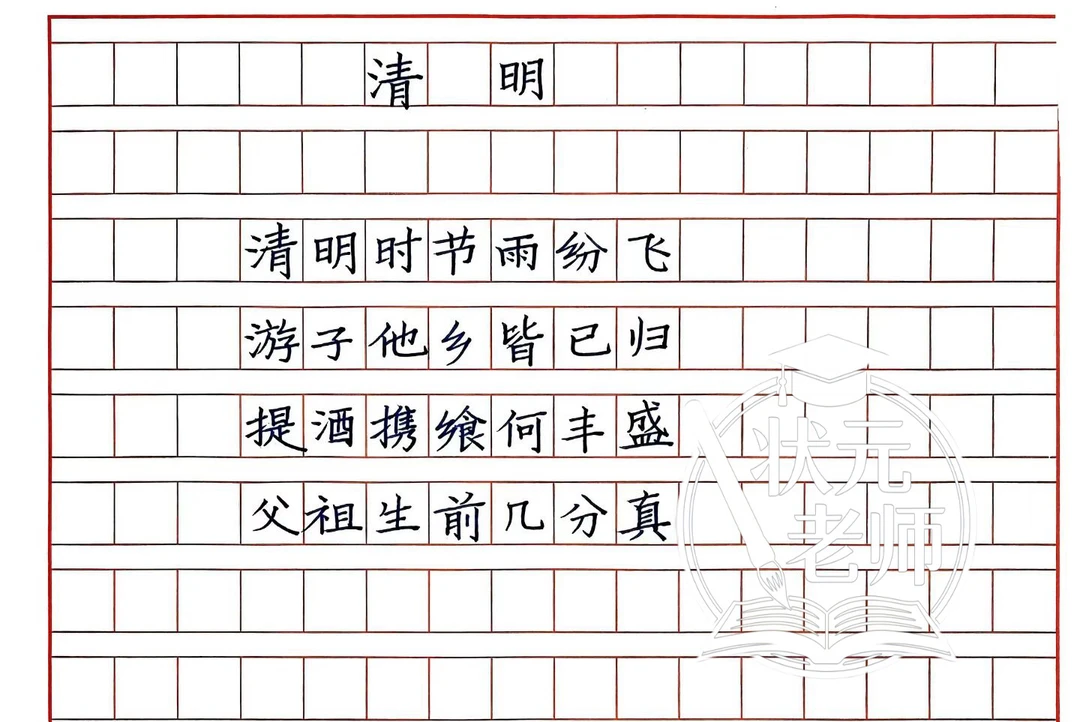 清 明
清明时节雨纷飞
游子他乡皆已归
提酒携飨何丰盛
父祖生前几分真
状元
老师